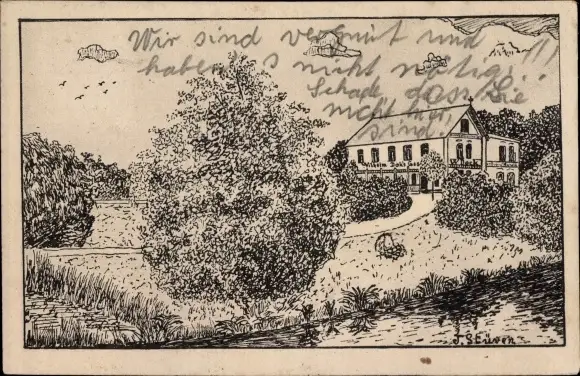 Wir sind vergnügt und
haben es nicht nötig!!!
Schade dass Sie
nicht hier
sind.
J. Stüven